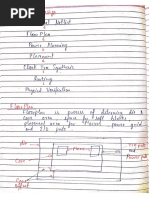 Netlist
Floor Plan
Power Planning
Placement
Clock Tree Synthesis
Routing
Physical Verification
Floor Plan
Floorplan is process of determine die &
core area space for soft blocks
placement area for Macros power grid
and I/O pads
die
Macro
I/O pad
core
Core
offset